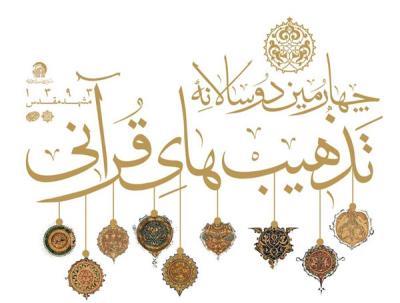 چهارمین دوسالانه
تذهیب‌های قرآنی
۱۳۹۳
مشهد مقدس